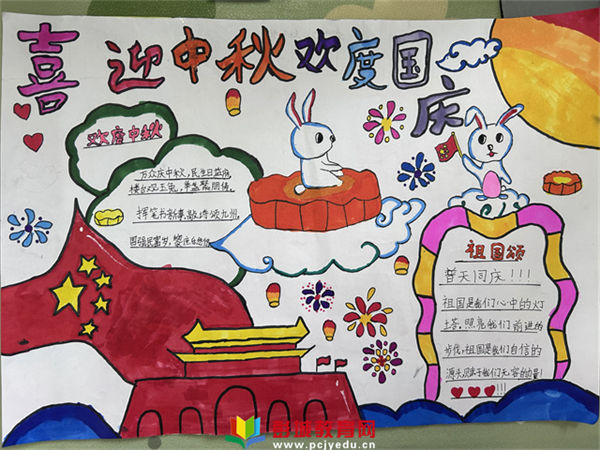 喜迎中秋欢度国庆
欢度中秋
万众庆中秋,民生日益
楼台双玉兔,
挥笔书新事,歌诗颂九州
国强民富岁,
祖国颂
普天同庆!!!
祖国是我们心中的灯
塔,照亮我们前进的
步伐,祖国是我们自信的
源头,赋予我们无穷的力量!
!!!
品诚教育网
www.pcjyedu.cn